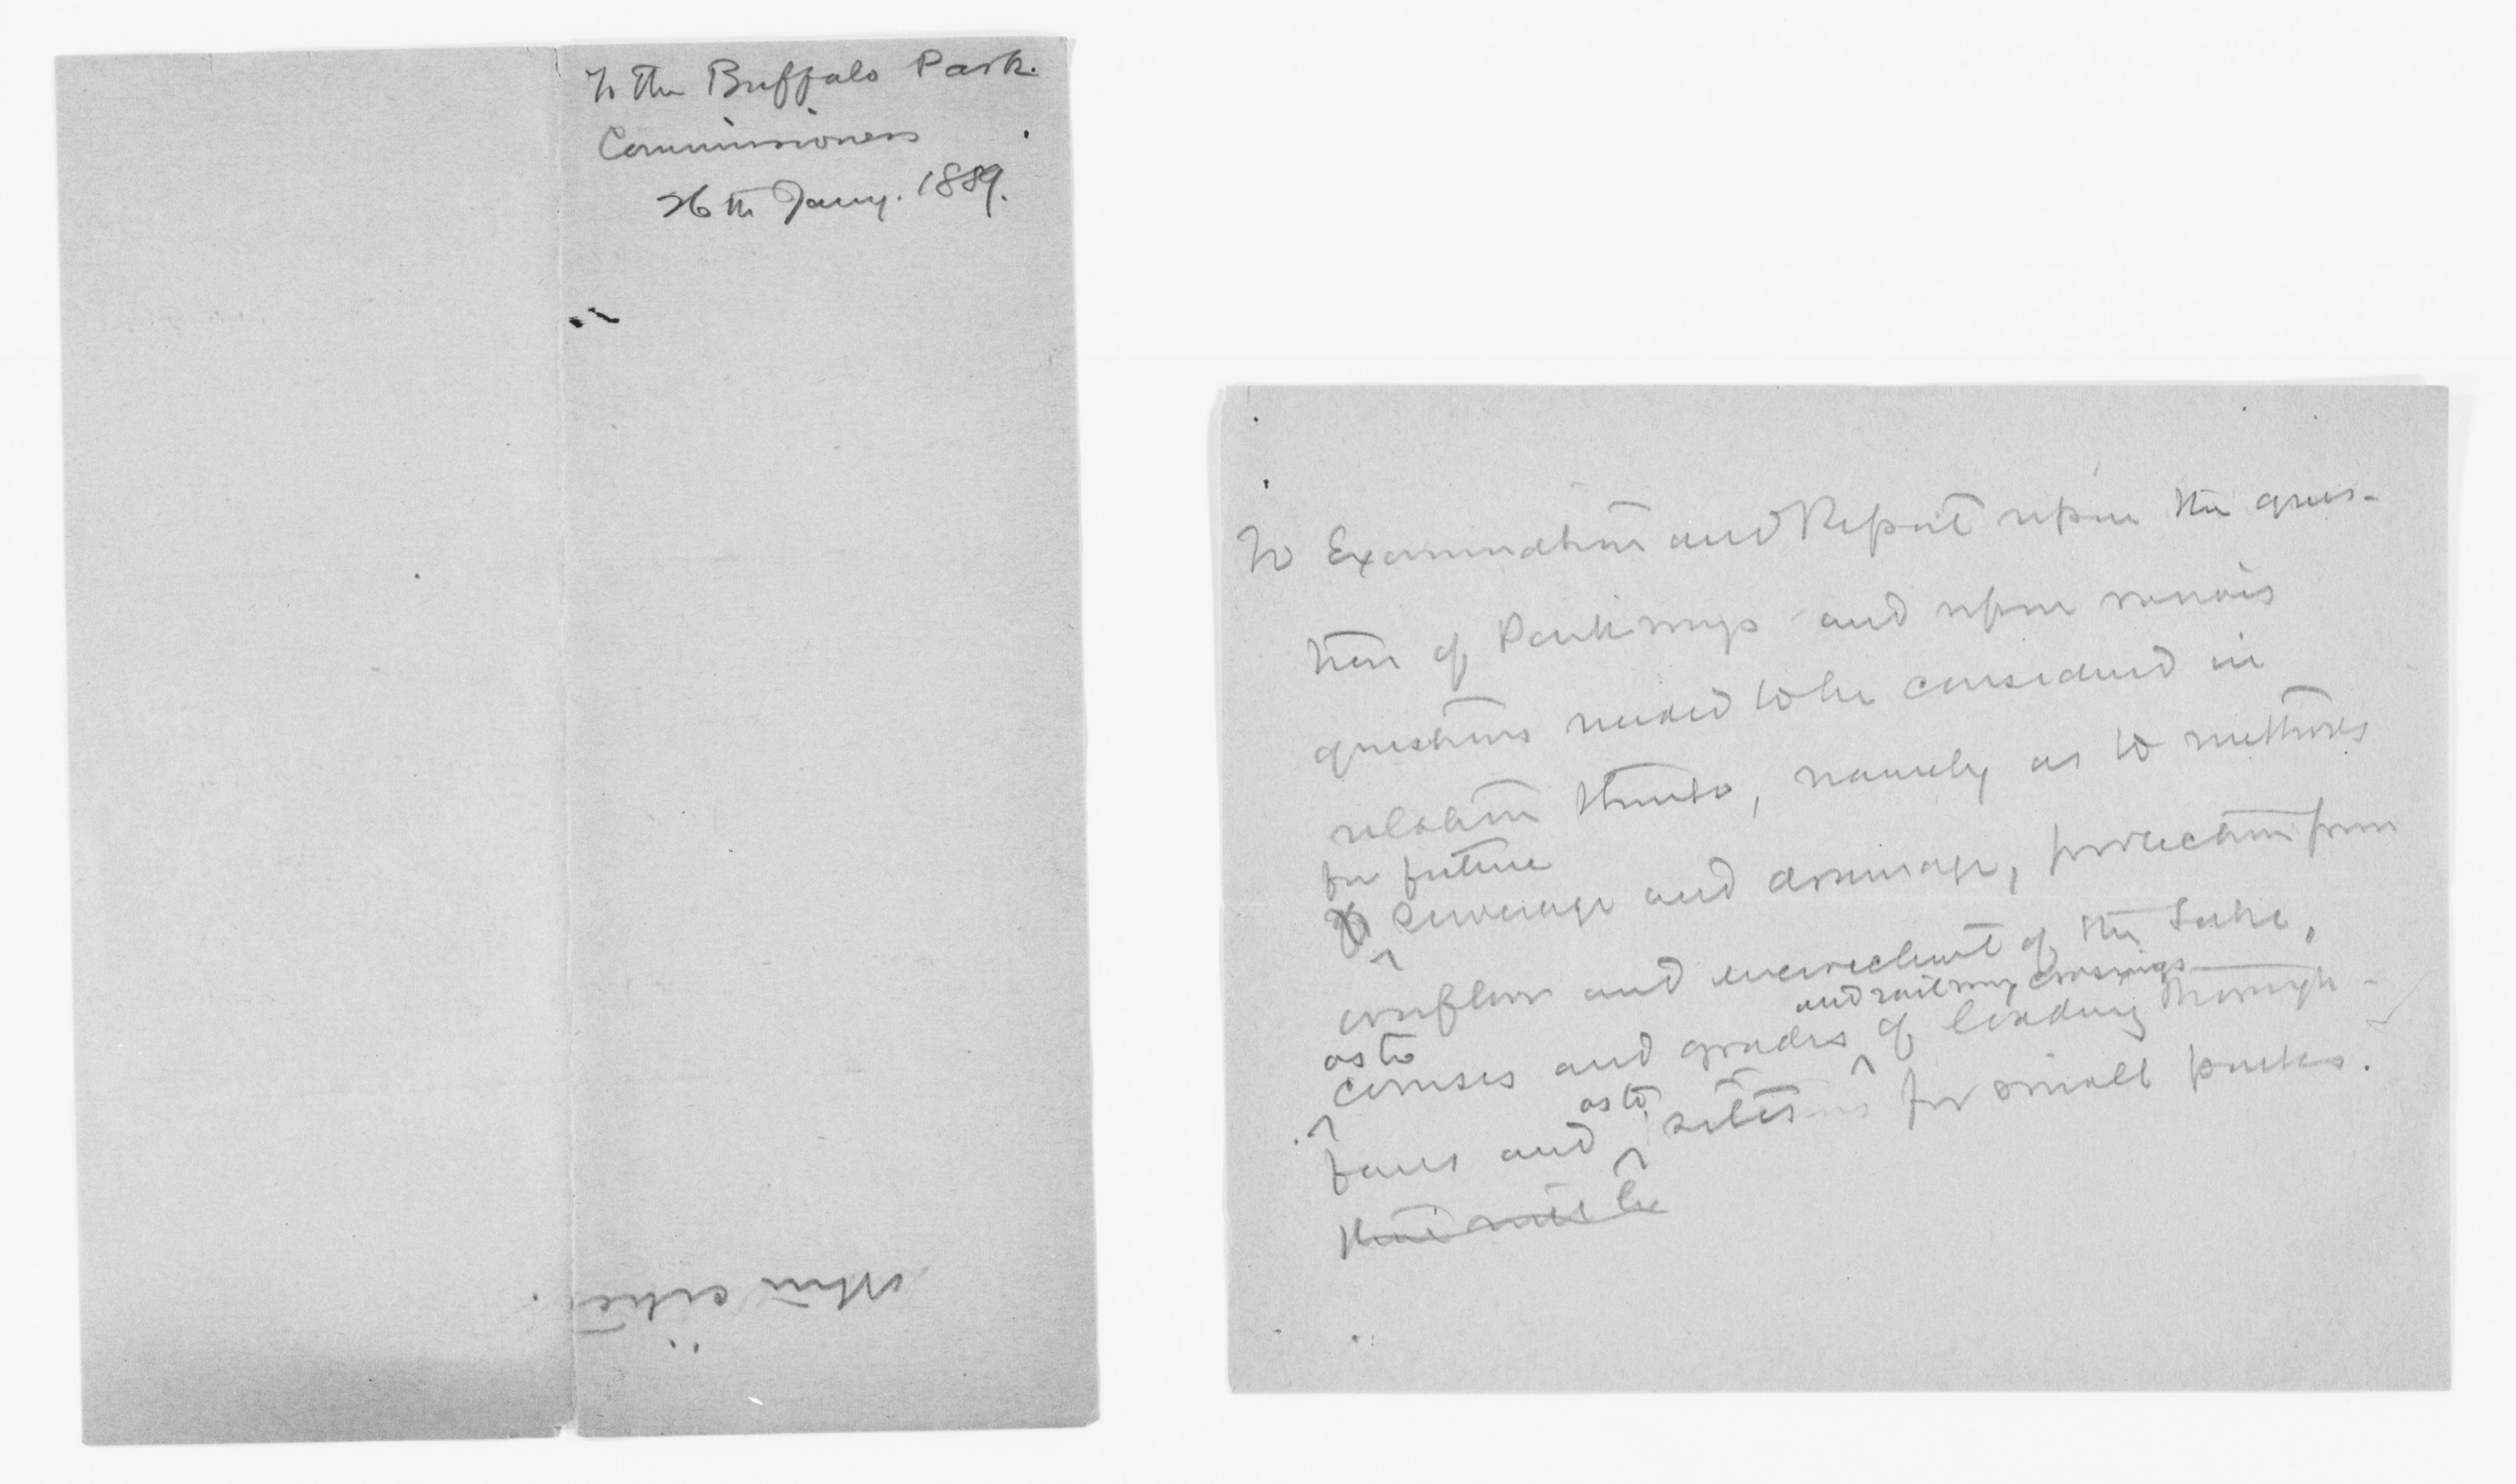 To the Buffalo Park.
Commissioners
26th Jany. 1889.
To Examination and Report upon the ques-
tion of Parkways and upon various
questions needed to be considered in
relation thereto, namely as to methods
for future
sewerage and drainage, protection from
overflow and encroachment of the Lake,
and railway crossings
as to
courses and grades of leading thorough-
as to
fares and sites for small parks.